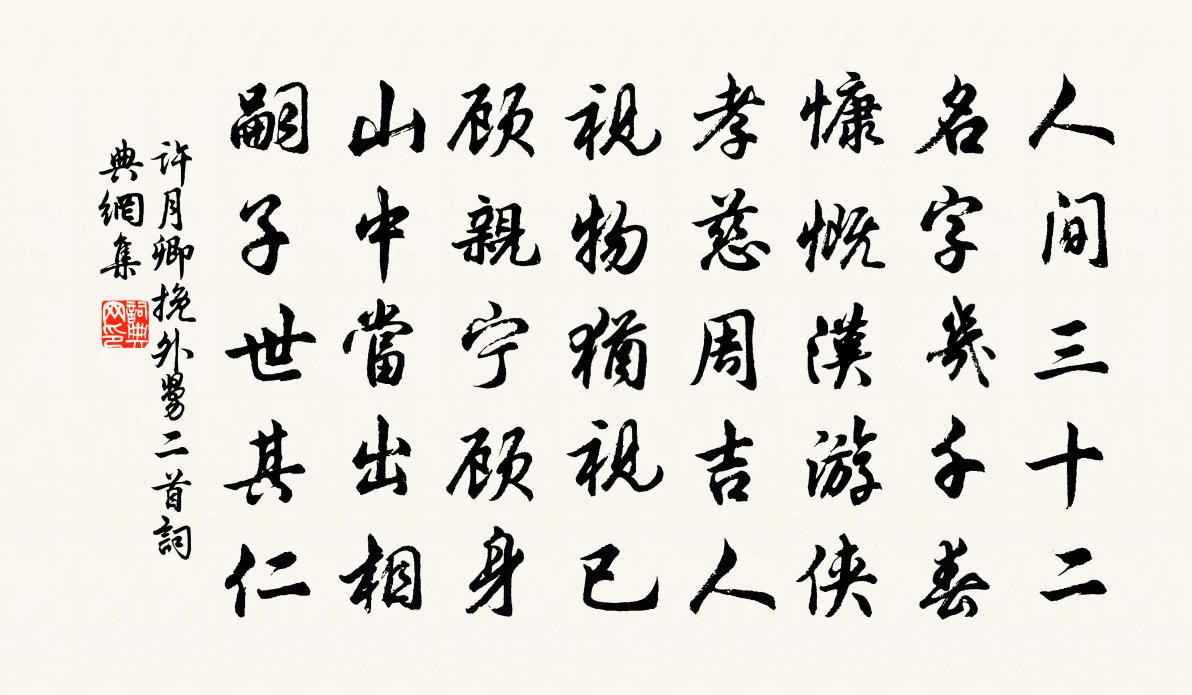 人间三十二
名字几千春
慷慨漢游侠
孝慈周吉人
視物猶視已
顾親宁顾身
山中當出相
嗣子世其仁
许月卿挽外舅二首詞
典網集
詞典网印